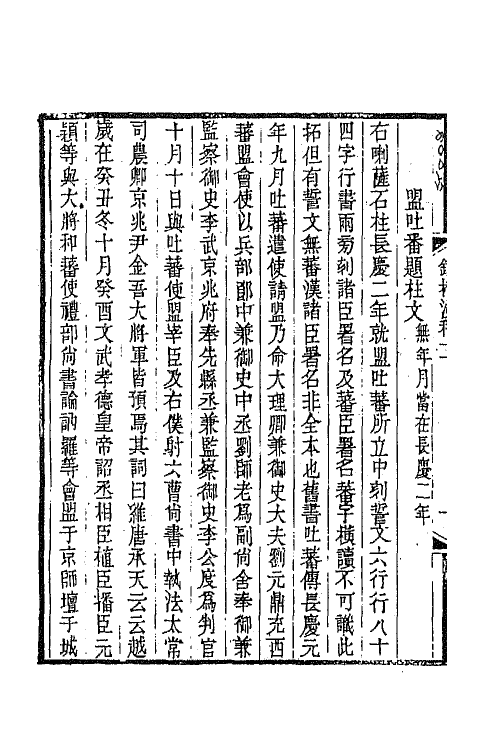 盟吐番題柱文無年月當在長慶二年
右喇薩石柱長慶二年就盟吐蕃所立中刻誓文六行行八十
四字行書兩旁刻諸臣署名及蕃臣署名蕃字橫讀不可識此
拓但有誓文無蕃漢諸臣署名非全本也舊書吐蕃傳長慶元
年九月吐蕃遣使請盟乃命大理卿兼御史大夫劉元鼎充西
蕃盟會使以兵部郎中兼御史中丞劉師老爲副尙舍奉御兼
監察御史李武京兆府奉先縣丞兼監察御史李公度爲判官
十月十日與吐蕃使盟宰臣及右僕射六曹尙書中執法太常
司農卿京兆尹金吾大將軍皆預焉其詞曰維唐承天云云越
歲在癸丑冬十月癸酉文武孝德皇帝詔丞相臣植臣播臣元
穎等與大將和蕃使禮部尙書論訥羅等會盟于京師壇于城